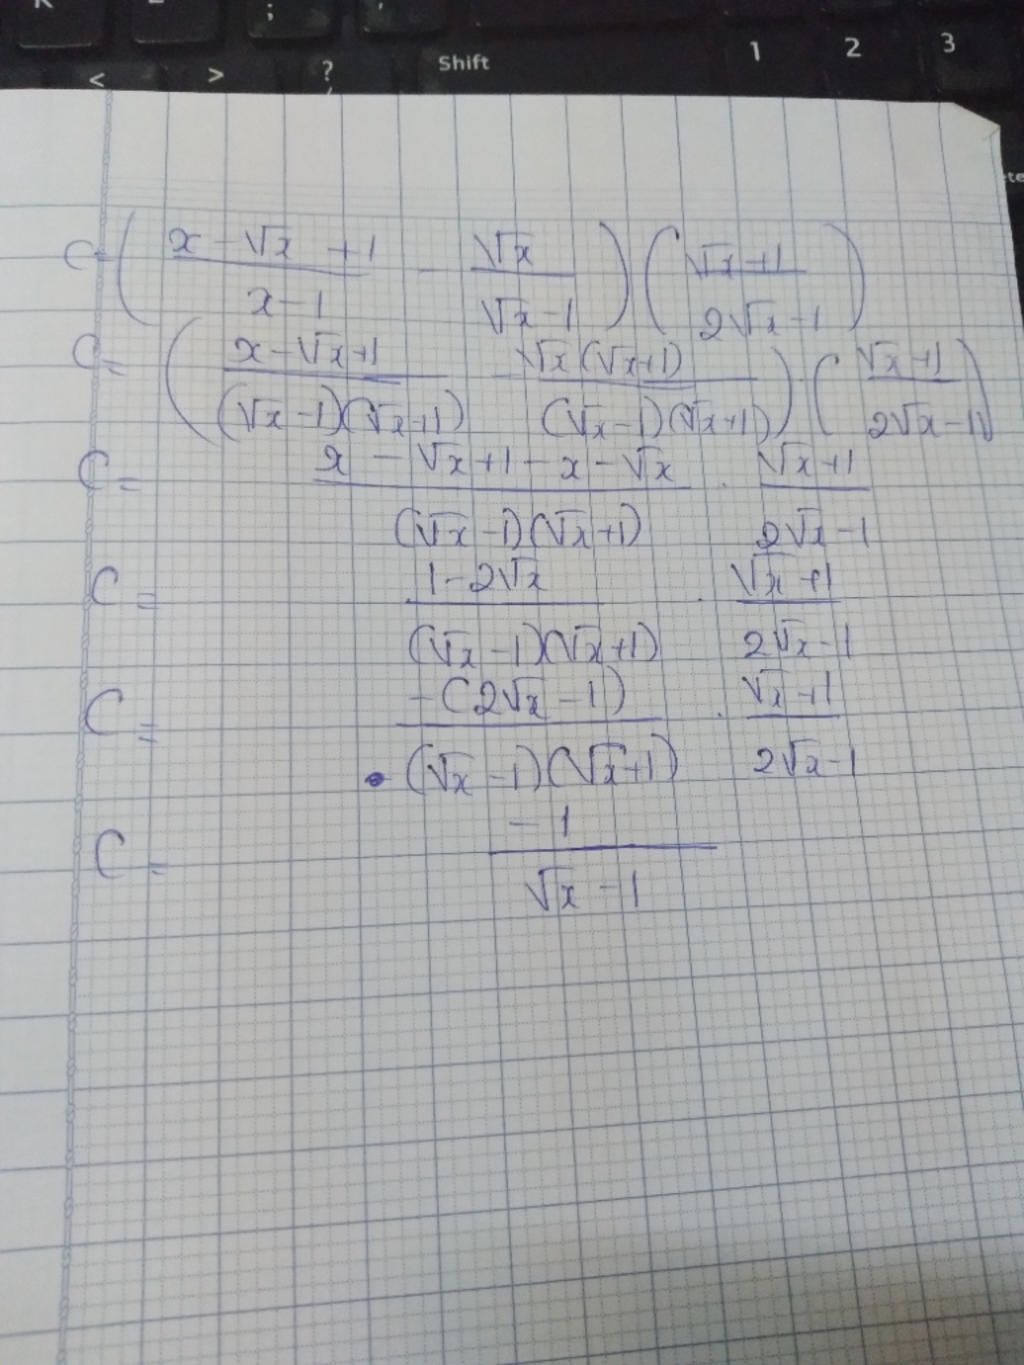 K ; ,
< > ? Shift 1 2 3
C = ( (x - √x + 1)/(x - 1) - √x/(√x - 1) ) ( (√x + 1)/(2√x - 1) )
C = ( (x - √x + 1)/((√x - 1)(√x + 1)) - √x(√x + 1)/((√x - 1)(√x + 1)) ) · ( (√x + 1)/(2√x - 1) )
C = (x - √x + 1 - x - √x)/((√x - 1)(√x + 1)) · (√x + 1)/(2√x - 1)
C = (1 - 2√x)/((√x - 1)(√x + 1)) · (√x + 1)/(2√x - 1)
C = -(2√x - 1)/((√x - 1)(√x + 1)) · (√x + 1)/(2√x - 1)
C = -1/(√x - 1)